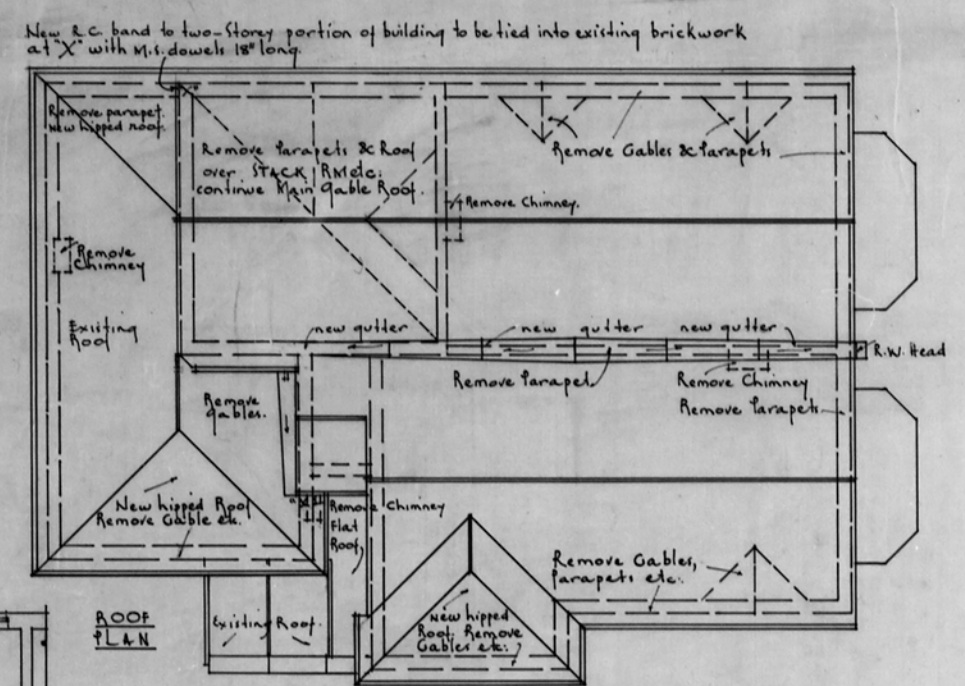 New R.C. band to two-Storey portion of building to be tied into existing brickwork
at "X" with M.S. dowels 18" long.
Remove parapet.
New hipped roof.
Remove Parapets & Roof
over STACK RM etc.
continue Main Gable Roof.
Remove Gables & Parapets
Remove Chimney.
Remove
Chimney
Existing
Roof
new gutter
new gutter
new gutter
R.W. Head
Remove Parapet.
Remove Chimney
Remove Parapets
Remove
Gables.
New hipped Roof
Remove Gable etc.
"X"
Remove Chimney
Flat
Roof
Remove Gables,
Parapets etc.
Existing Roof.
New hipped
Roof. Remove
Gables etc.
ROOF
PLAN